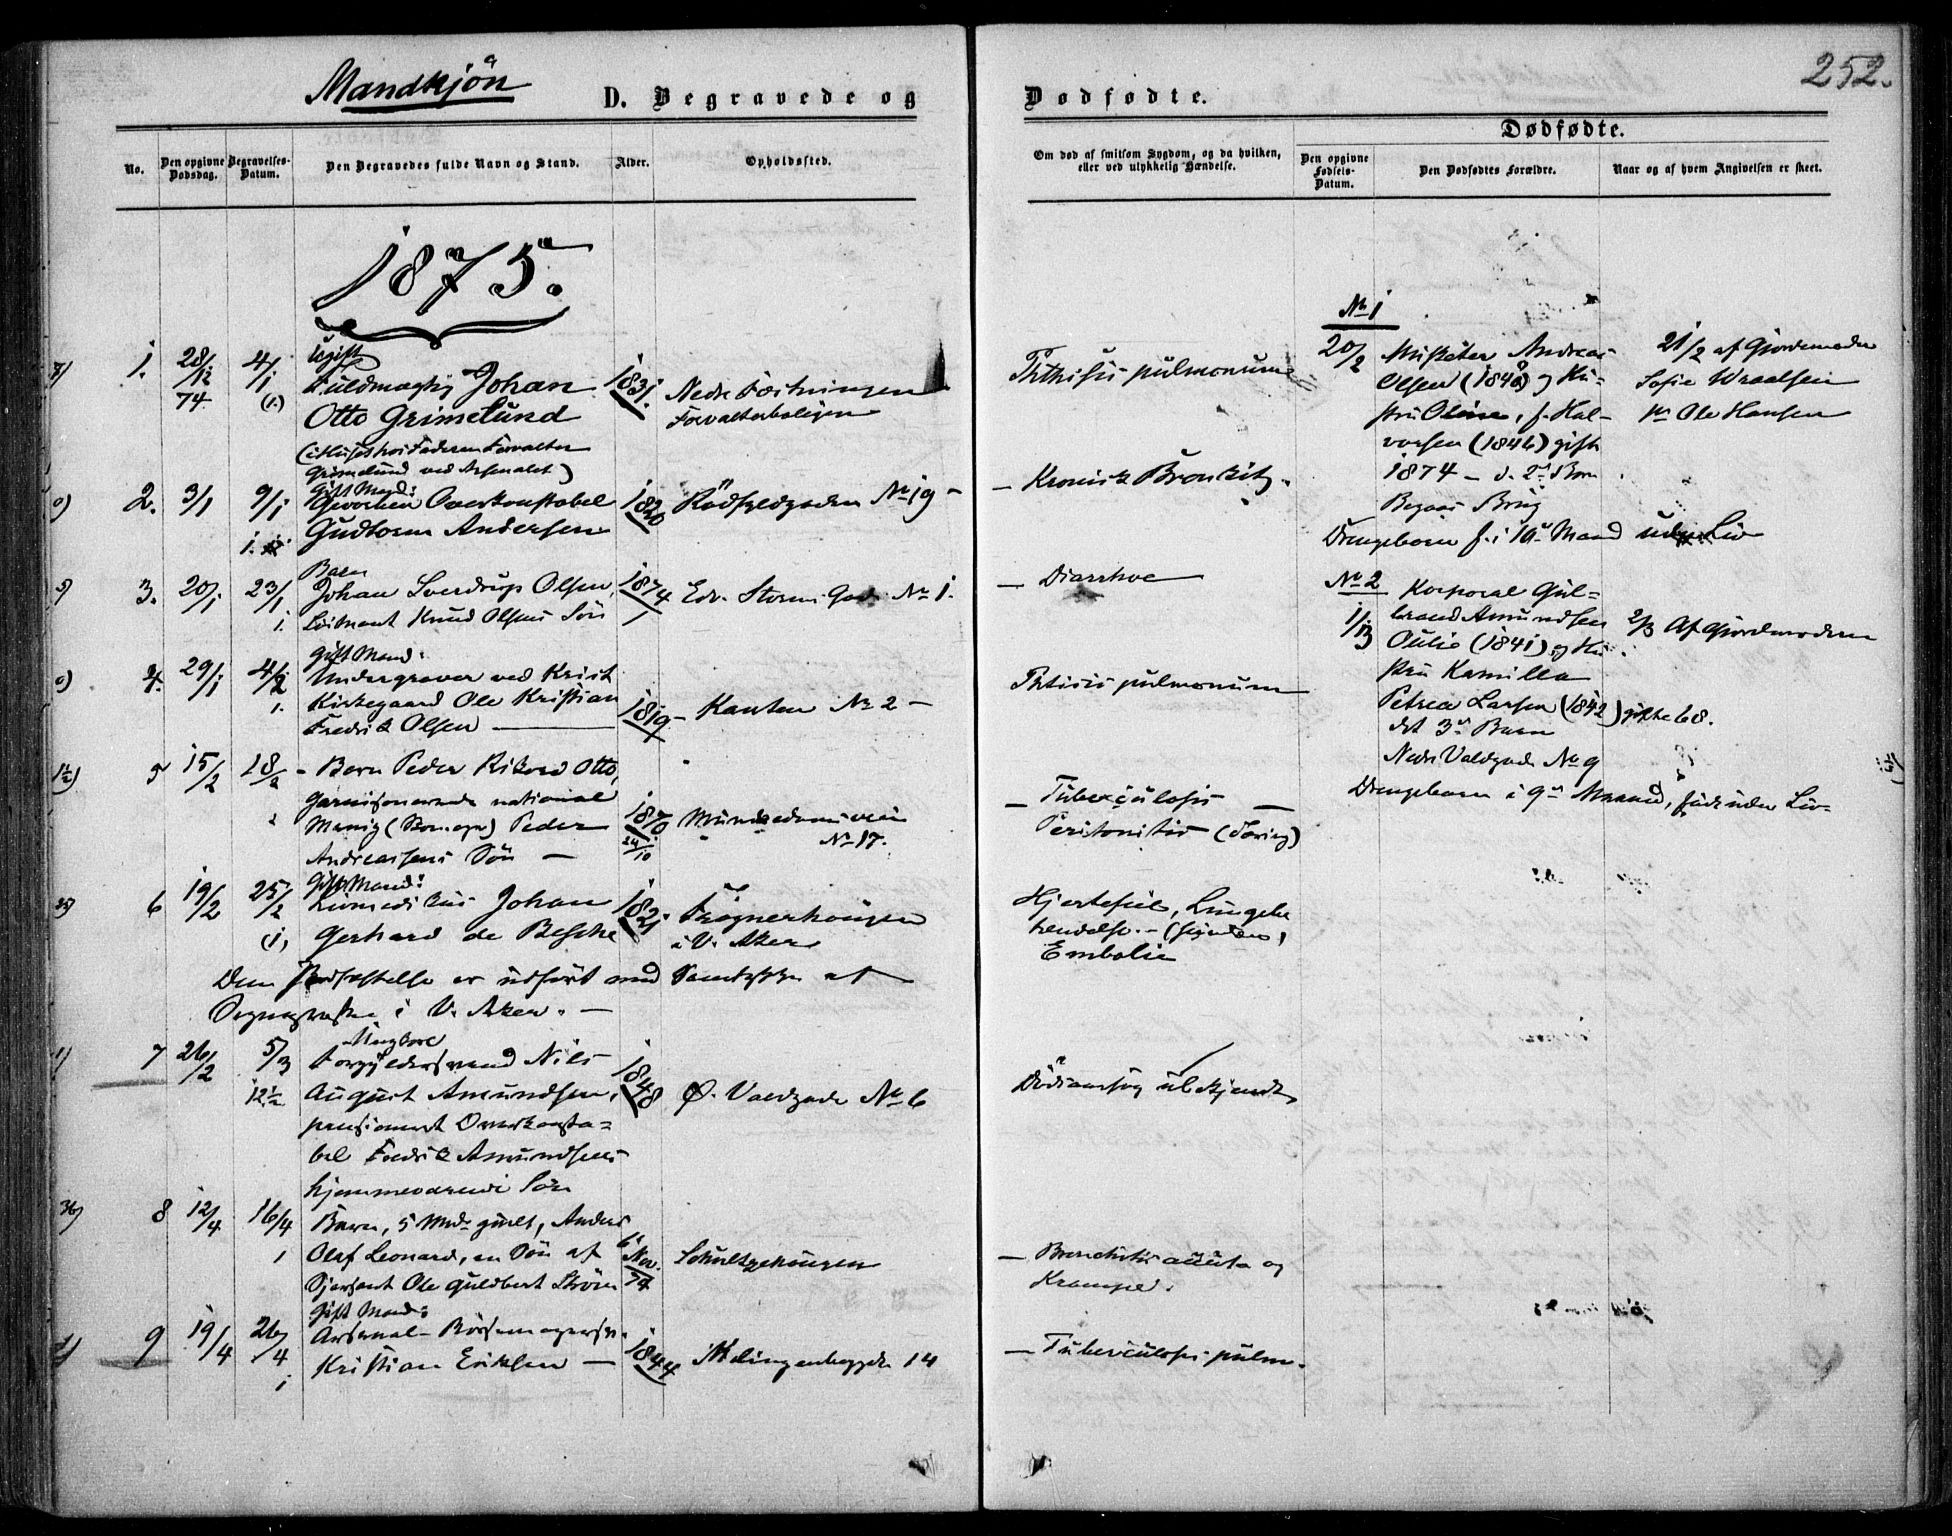 Mandkjön
D. Begravede og
No.
Den opgivne Dødsdag.
Begravelses-Datum.
Den Begravedes fulde Navn og Stand.
Alder.
Opholdssted.
1875.
1. 28/12 74 4/1 (1.)
Ugift
Fuldmægtig Johan
Otto Grimelund
Grimelund ved Arsenalet)
1831.
Nedre Fæstningen
Forvalterboligen
2. 3/1 9/1
Gift Mand:
Overkonstabel
Gudtorm Andersen
1820
No 19 -
3. 20/1 23/1 1.
Barn
Johan Sverdrup Olsen,
Løitnant Knud Olsens Sön
1874
Edv. Storms Gade No 1.
4. 29/1 4/2 1.
Gift Mand:
Undergraver ved Krist
Kirkegaard Ole Kristian
Fredrik Olsen
1819 -
Kanten No 2 -
5 15/2 18/2
- Barn Peder Rikard Otto,
Garnisonerende national
Peder
Andreassens Sön -
1870 24/10
Munkedamsveien
No 17.
6 19/2 25/2 (1)
Gift Mand:
Livmedikus Johan
Gerhard de Besche
1821.
Frognerhaugen
i V. Aker
Den Jordfæstelse er udført med Samtykke af
Sognepresten i V. Aker. -
7 26/2 5/3 12 1/2
Ungkarl
Forgyldersvend Nils
August Amundsen,
pensioneret Overkonsta-
bel Fredrik Amundsens
hjemmeværende Sön
1848
Ø. Voldgade No 6
8 12/4 16/4 1
Barn, 5 Mdr gmlt, Anders
Olaf Leonard, en Sön af
Sjersant Ole Guldbert Ström
6 Nov. 74
Schultzehaugen
9 19/4 26/4 1
Gift Mand:
Arsenal-Börsemagersv.
Kristian Eriksen -
1844
14
252.
Dødfødte.
Om død af smitsom Sygdom, og da hvilken,
eller ved ulykkelig Hændelse.
Dødfødte.
Den opgivne Fødsels-Datum.
Den Dødfødtes Forældre.
Naar og af hvem Angivelsen er skeet.
Phthisis pulmonum
- Kronisk Bronkit,
- Diarrhoe
Phtisis pulmonum
- Tuberculosis
Peritonitis (Tæring)
Hjertefeil, Lungebe
tændelse. -
Embolie
Dödsaarsag ubekjendt
- Bronchitis acuta og
Krampe.
- Tuberculosis pulm.
No 1
20/2
Musketer Andreas
Olsen (1848) og Hu-
stru Oline, f. Hal-
vorsen (1846) gift
1874 - d. 2det Barn
Drengebarn f. i 10de Maaned uden Liv
21/2 af Gjordemoder
Sofie Wraalsen
pr Ole Hansen
No 2
1/3
Korporal Gul-
brand Amundsen
(1841) og Hu-
stru Kamilla
Petrea Larsen (1842) gifte 68.
det 3de Barn
Nedre Voldgade No 9
Drengebarn i 9de Maaned, født uden Liv.
2/3 Af Gjordemoderen